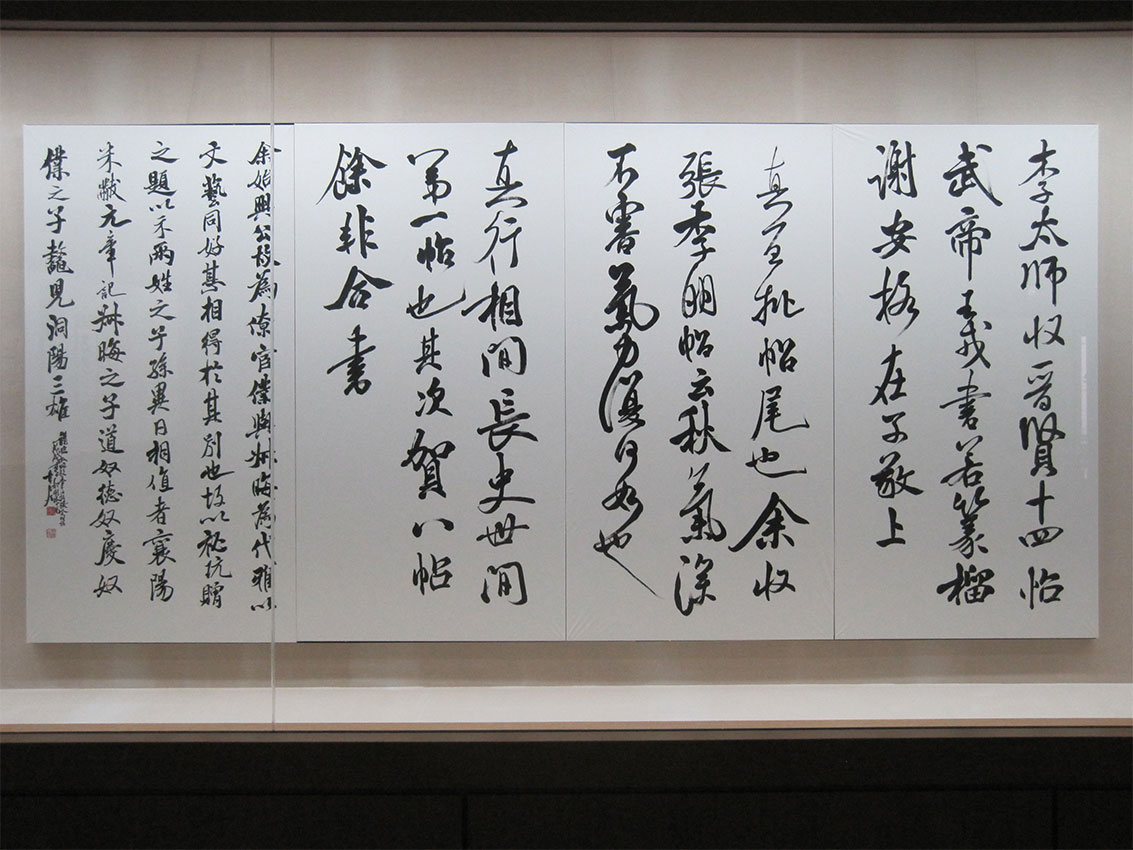 李太師收晉賢十四帖
武帝王戎書若篆籀
謝安格在子敬上
真宜批帖尾也余收
張季明帖云秋氣深
不審氣力復何如也
真行相間長史世間
第一帖也其次賀八帖
餘非合書
余始興公故為僚宦僕與叔晦為代雅以
文藝同好甚相得於其別也故以秘玩贈
之題以示兩姓之子孫異日相值者襄陽
米黻元章記叔晦之子道奴德奴慶奴
僕之子鼇兒洞陽三雄